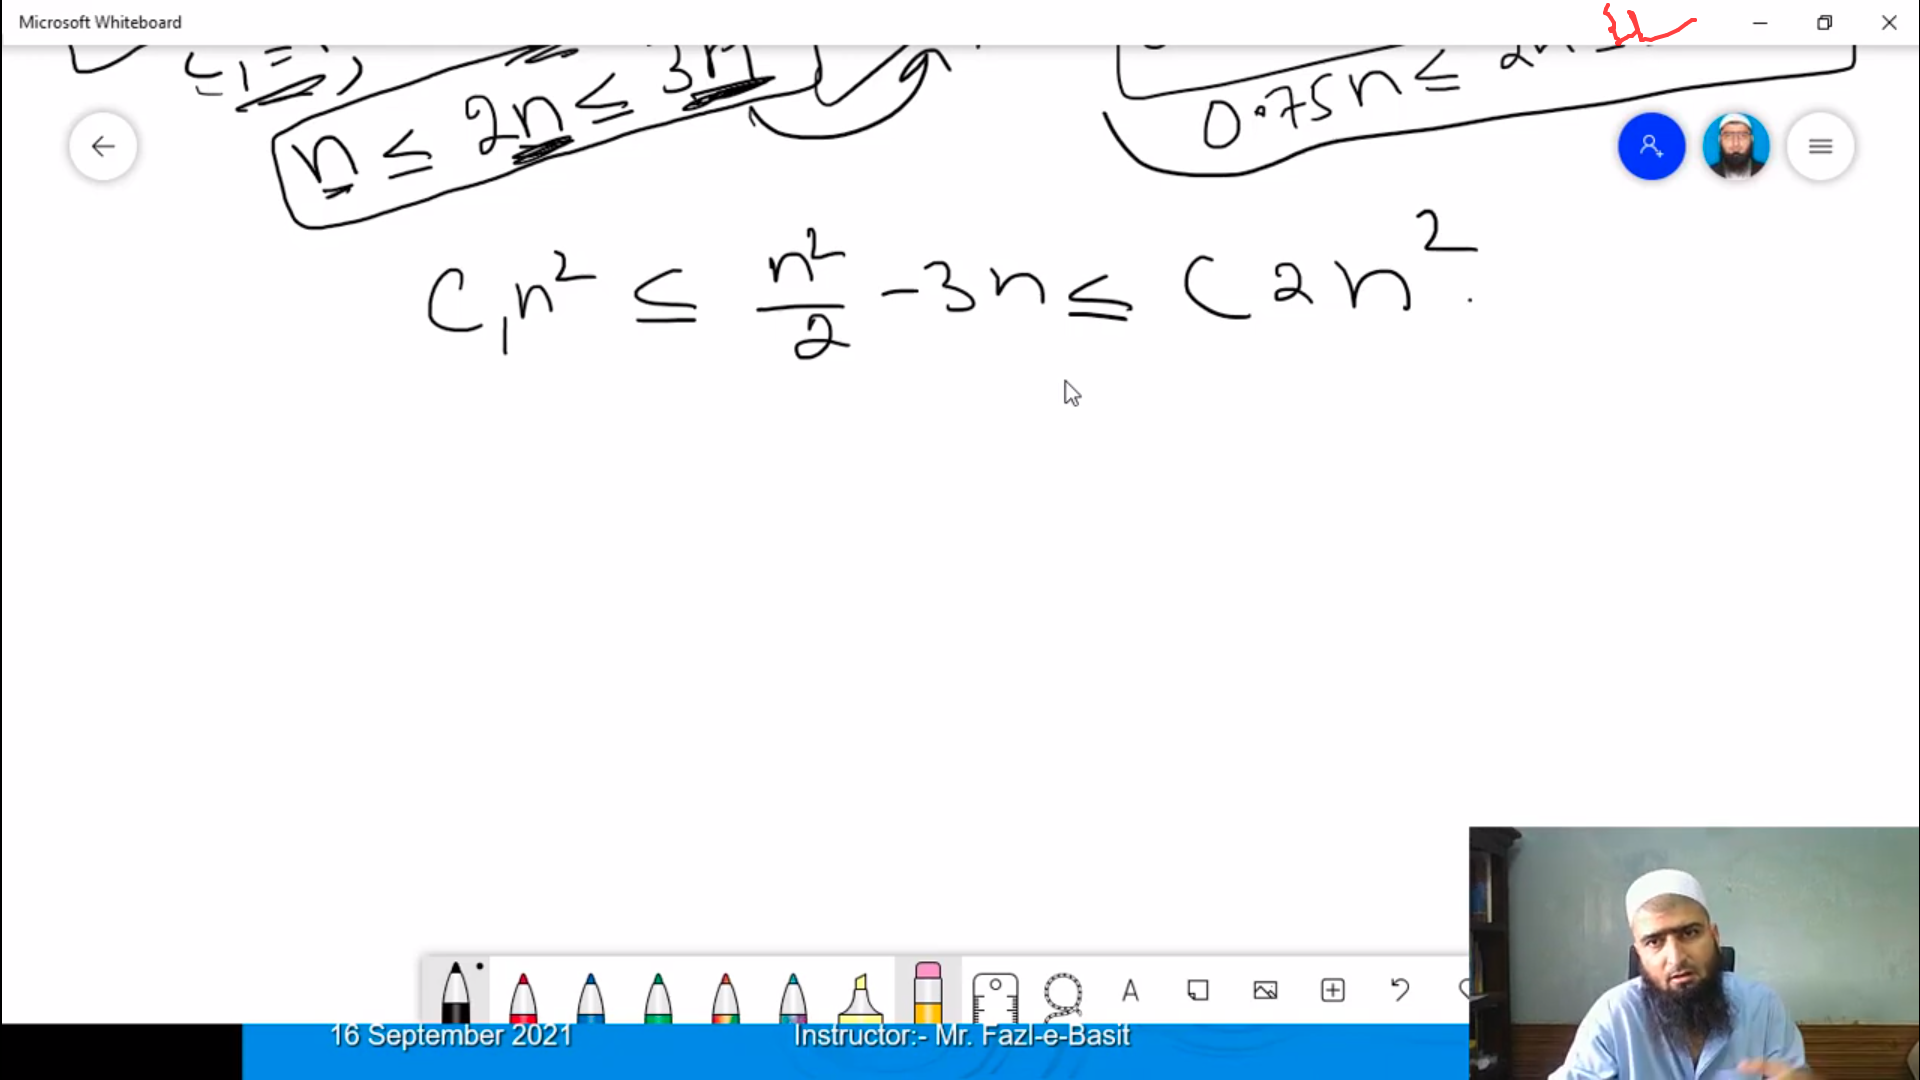 Microsoft Whiteboard
n ≤ 2n ≤ 3n
0.75n ≤ 2n
C₁n² ≤ n²/2 - 3n ≤ C2n².
A
16 September 2021
Instructor:- Mr. Fazl-e-Basit